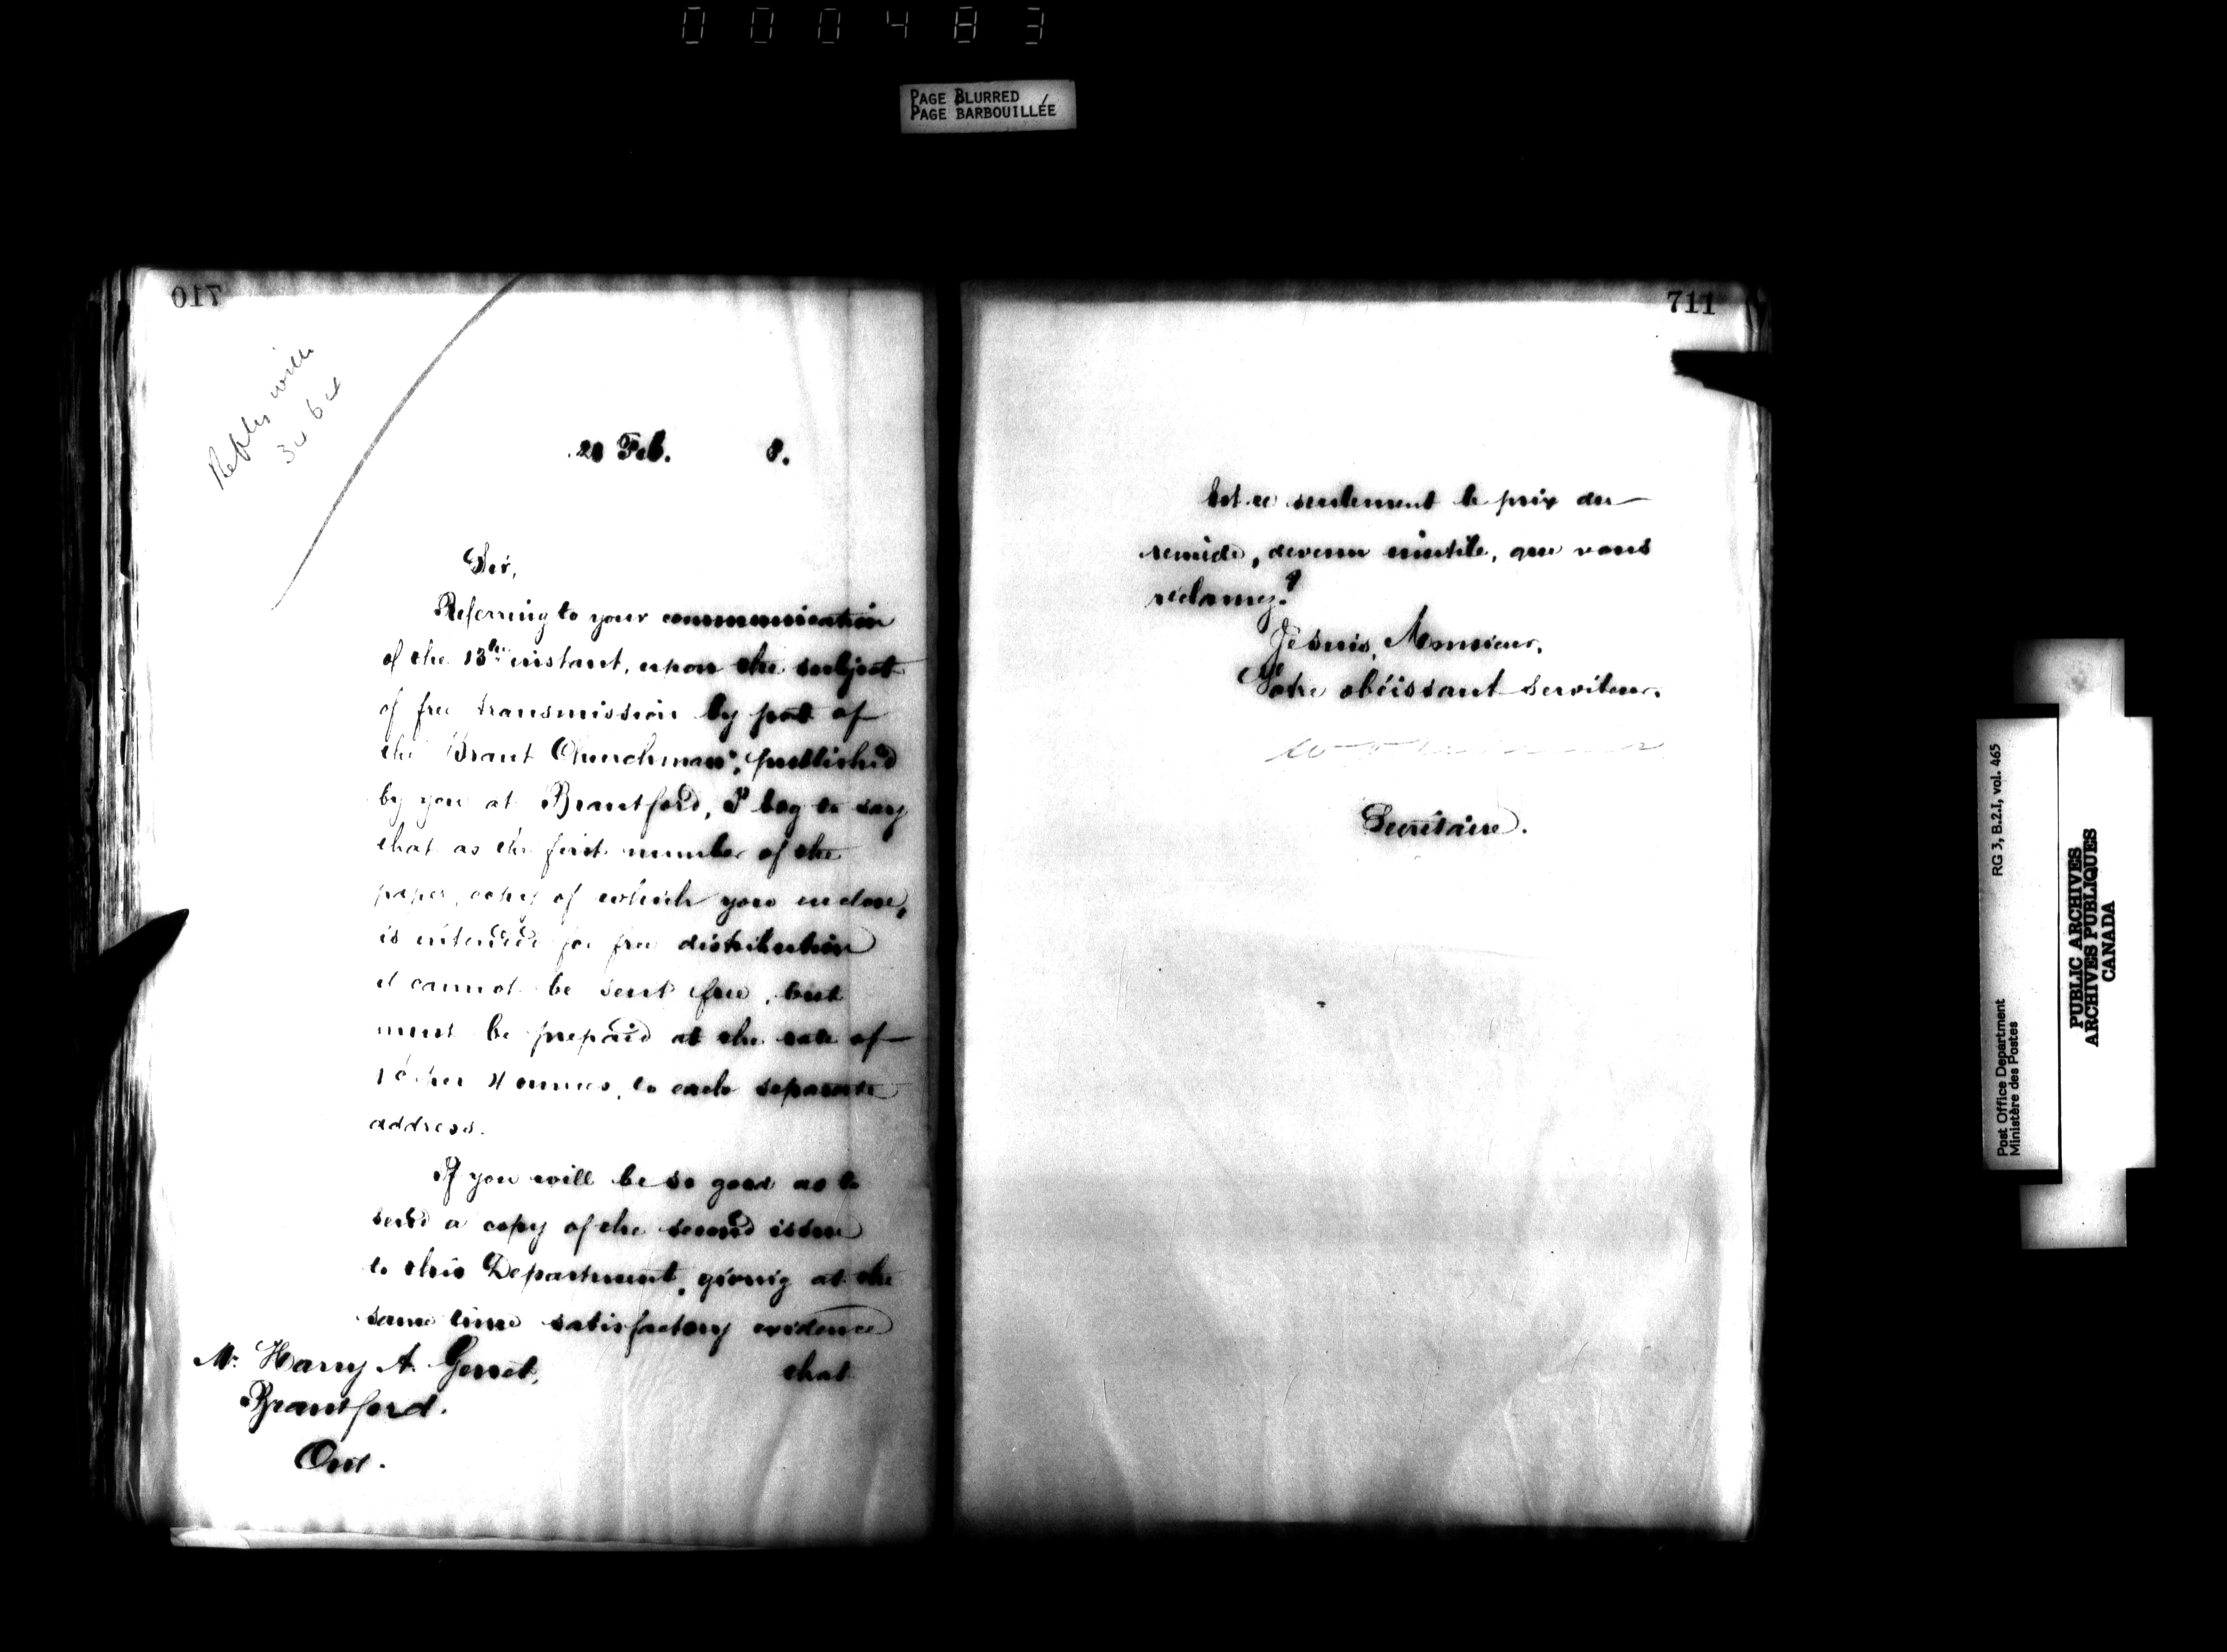 000483
PAGE BLURRED
PAGE BARBOUILLÉE
710
20 Feb. 8.
Sir,
Referring to your communication
of the 13th instant, upon the subject
of free transmission by post of
the "Brant Churchman", published
by you at Brantford, I beg to say
that as the first number of the
paper, copy of which you enclose,
is intended for free distribution
it cannot be sent free, but
must be prepaid at the rate of
1c per 4 ounces, to each separate
address.
If you will be so good as to
send a copy of the second issue
to this Department, giving at the
same time satisfactory evidence
that
Mr. Harry A. Genet,
Brantford.
Ont.
711
Est-ce seulement le prix du
remède, devenu inutile, que vous
réclamez?
Je suis, Monsieur,
Votre obéissant serviteur.
Secrétaire.
Post Office Department
Ministère des Postes
RG 3, B.2.I, vol. 465
PUBLIC ARCHIVES
ARCHIVES PUBLIQUES
CANADA